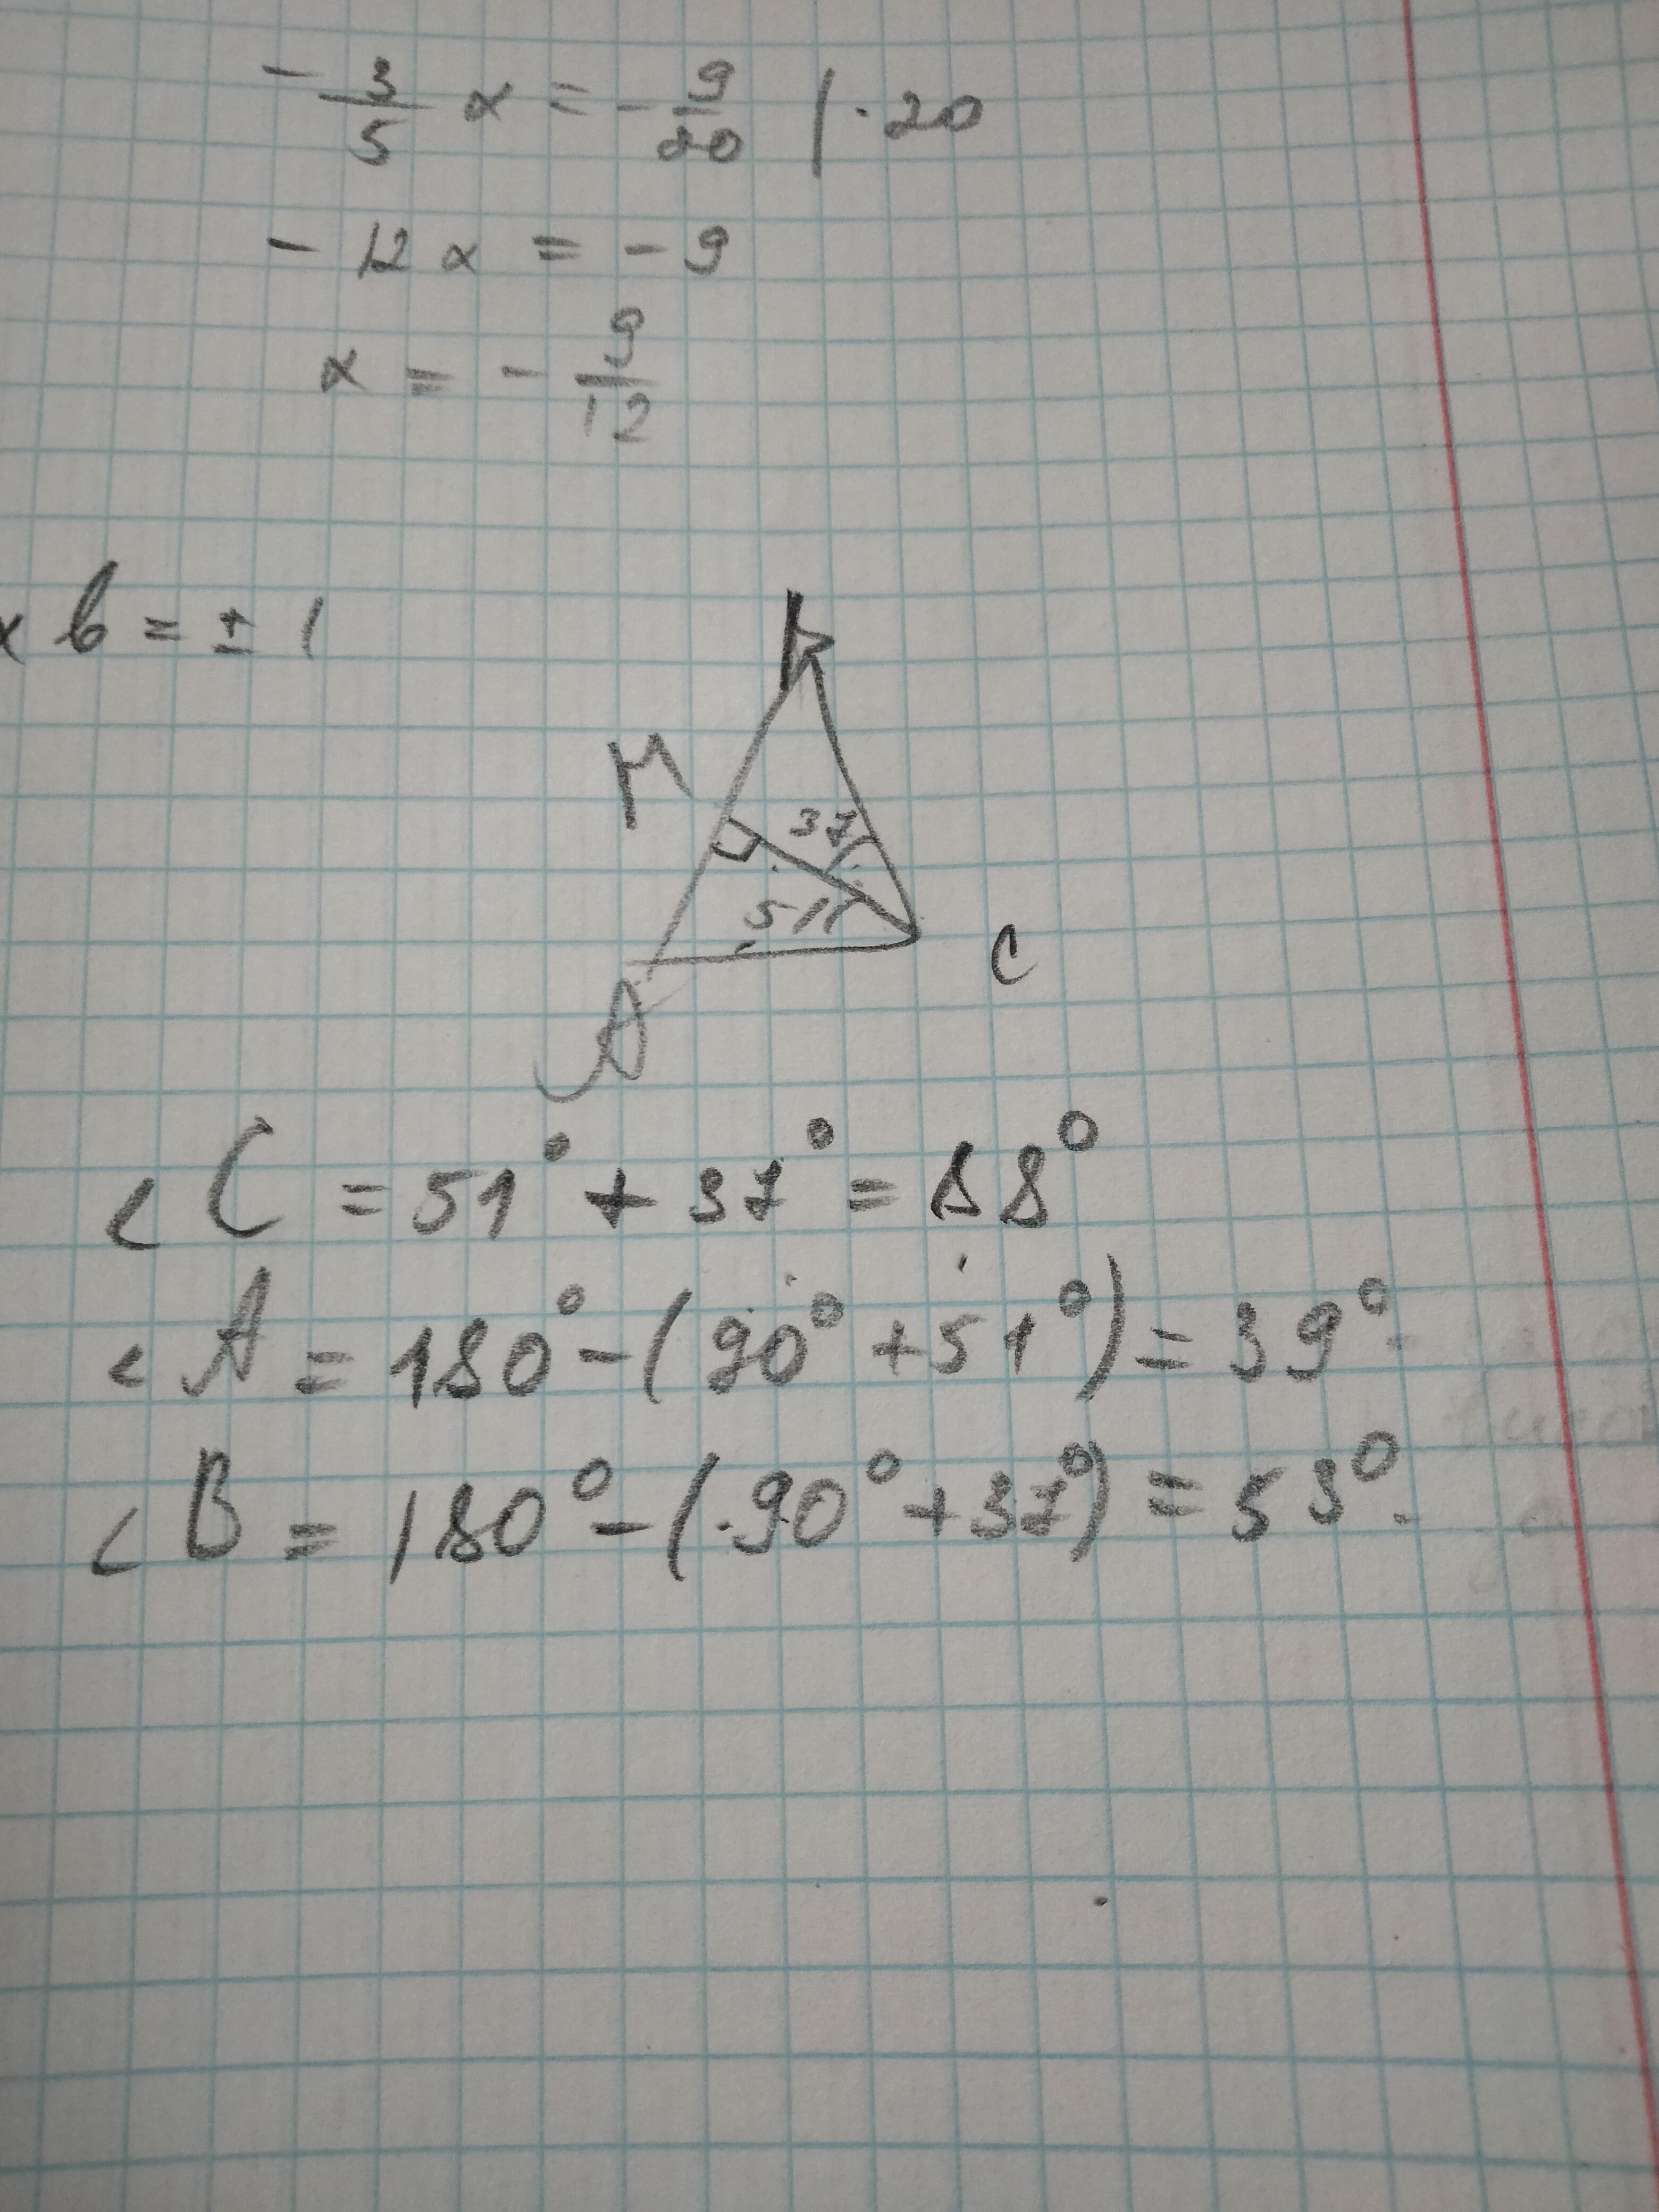 - 3/5 x = - 9/20 | · 20
- 12 x = - 9
x = - 9/12
x b = ± 1
B
M
37
51
C
A
∠C = 51° + 37° = 88°
∠A = 180° - (90° + 51°) = 39°
∠B = 180° - (90° + 37°) = 53°.